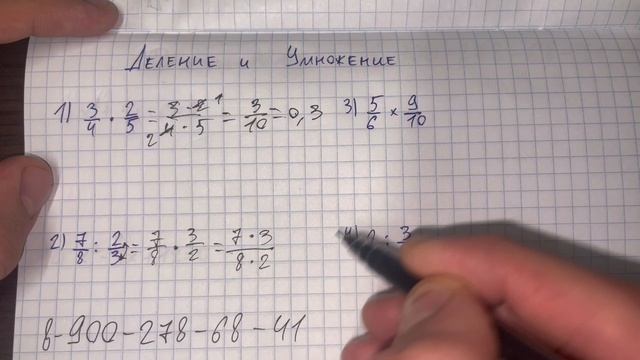 Деление и Умножение
1) 3/4 · 2/5 = 3·2/4·5 = 3/10 = 0,3
3) 5/6 × 9/10
2) 7/8 : 2/3 = 7/8 · 3/2 = 7·3/8·2
8-900-278-68-41